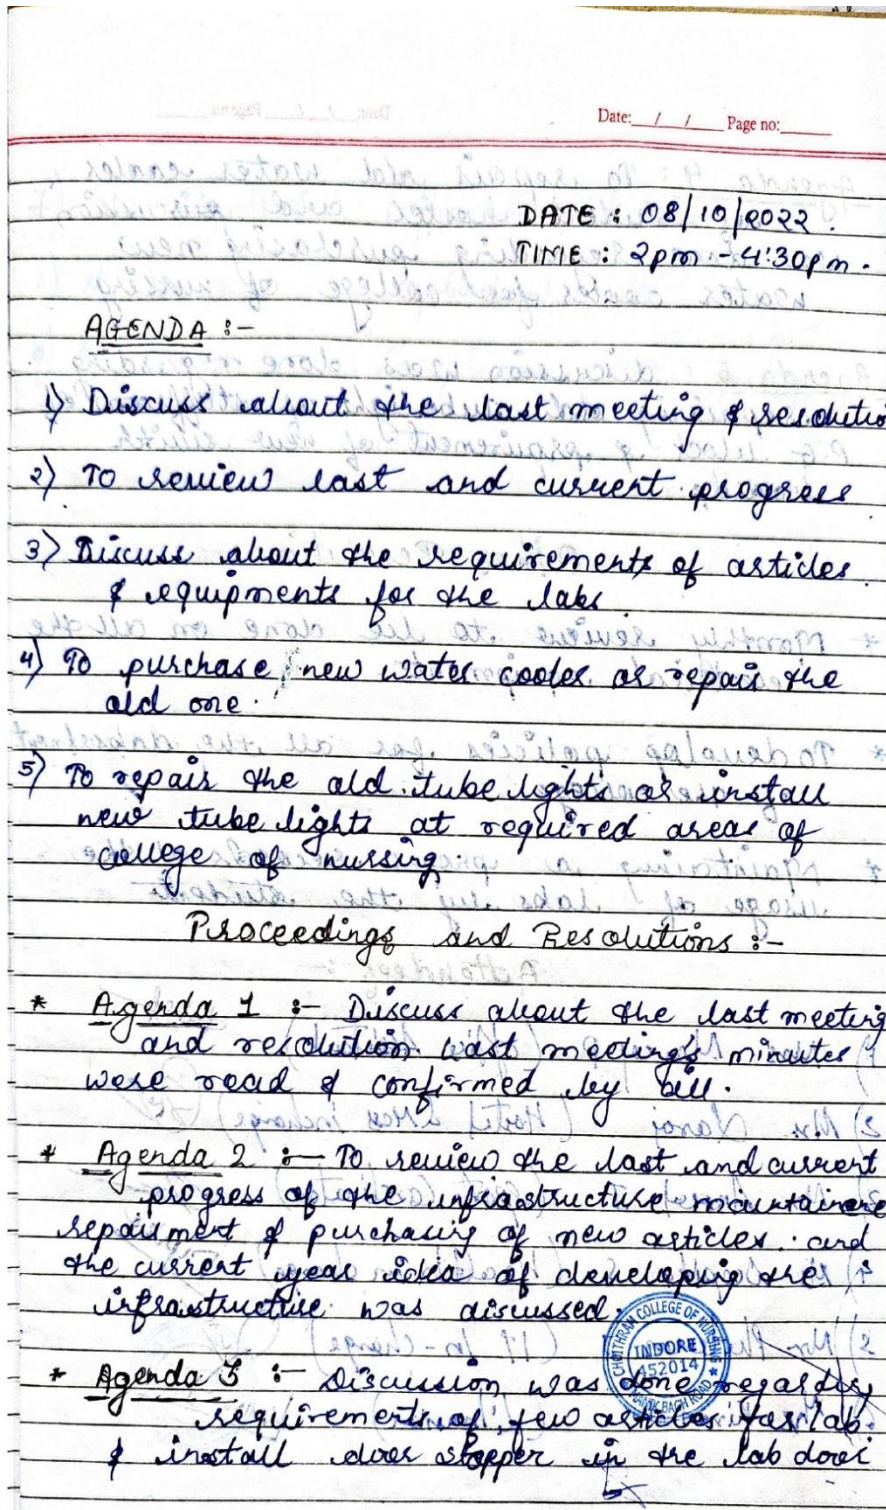 Date: / / Page no:
DATE : 08/10/2022.
TIME : 2pm - 4:30pm.
AGENDA :-
1) Discuss about the last meeting & resolutio
2) To review last and current progress
3) Discuss about the requirements of articles
& equipments for the labs.
4) To purchase new water cooler or repair the
old one.
5) To repair the old tube lights or install
new tube lights at required areas of
college of nursing.
Proceedings and Resolutions :-
* Agenda 1 :- Discuss about the last meeting
and resolution last meeting's minutes
were read & confirmed by all.
* Agenda 2 :- To review the last and current
progress of the infrastructure
& purchasing of new articles. and
the current year idea of developing the
infrastructure was discussed.
* Agenda 3 :- Discussion was done regarding
requirements of few articles for lab.
& install door stopper in the lab door
CHOITHRAM COLLEGE OF NURSING
INDORE
452014
MANIK BAGH ROAD